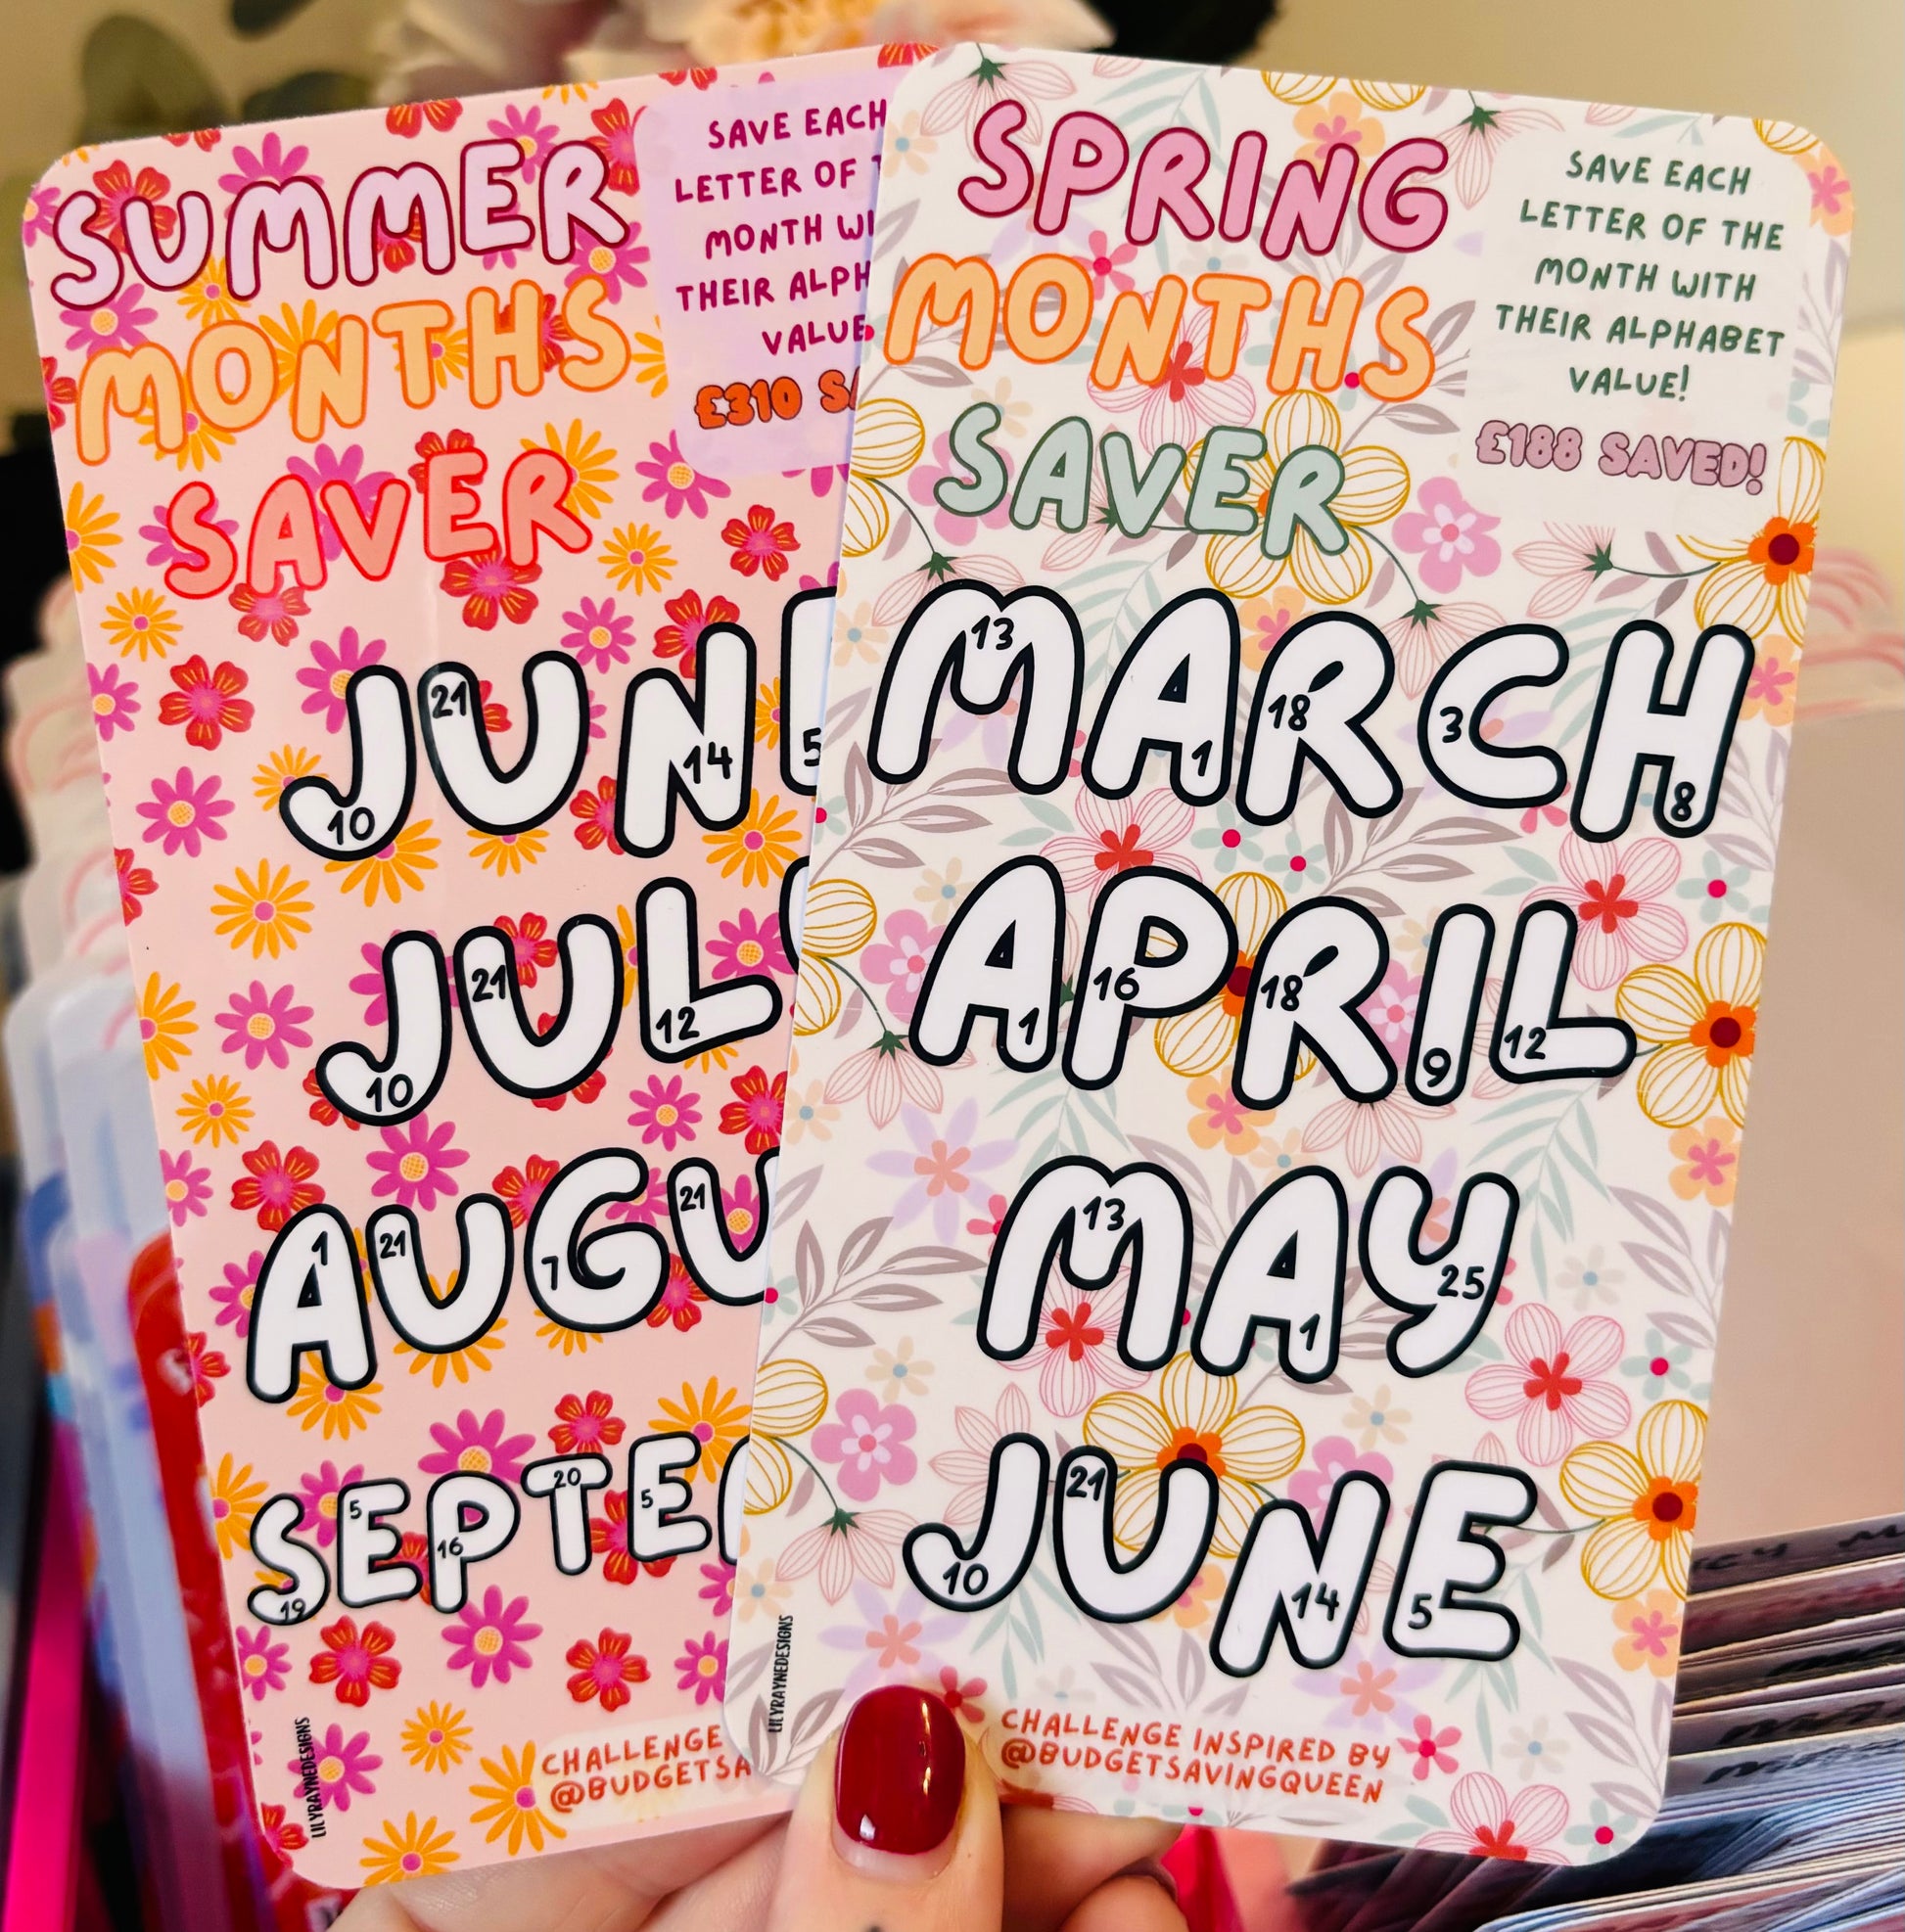 SUMMER
MONTHS
SAVER
SAVE EACH
LETTER OF
MONTH
THEIR
VALUE
£310
10 21 14 5
JUNE
10 21 12
JUL
1 21 7 21
AUGU
19 5 16 20 5
SEPTE
LILYRAYNEDESIGNS
CHALLENGE
SPRING
MONTHS
SAVER
SAVE EACH
LETTER OF THE
MONTH WITH
THEIR ALPHABET
VALUE!
£188 SAVED!
13 1 18 3 8
MARCH
1 16 18 9 12
APRIL
13 1 25
MAY
10 21 14 5
JUNE
LILYRAYNEDESIGNS
CHALLENGE INSPIRED BY
@BUDGETSAVINGQUEEN